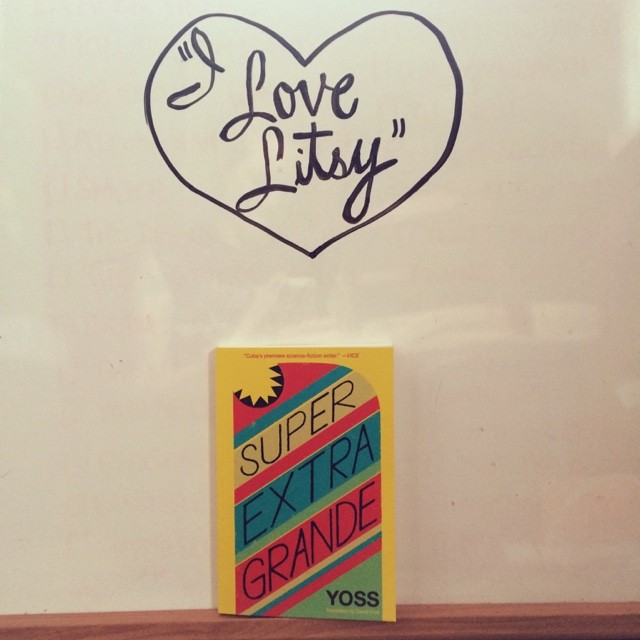 "I
Love
Litsy"
"Cuba's premiere science-fiction writer." —VICE
SUPER
EXTRA
GRANDE
YOSS